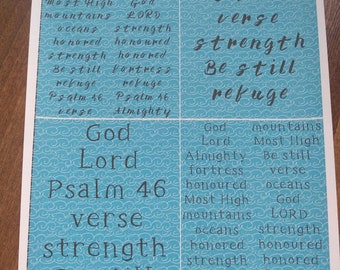 Most High God
mountains LORD
oceans strength
honored honoured
strength honored
Be still fortress
refuge refuge
Psalm 46 Psalm 46
verse Almighty
verse
strength
Be still
refuge
God
Lord
Psalm 46
verse
strength
God mountains
Lord Most High
Almighty Be still
fortress verse
honoured oceans
Most High God
mountains LORD
oceans strength
honored honoured
strength honored